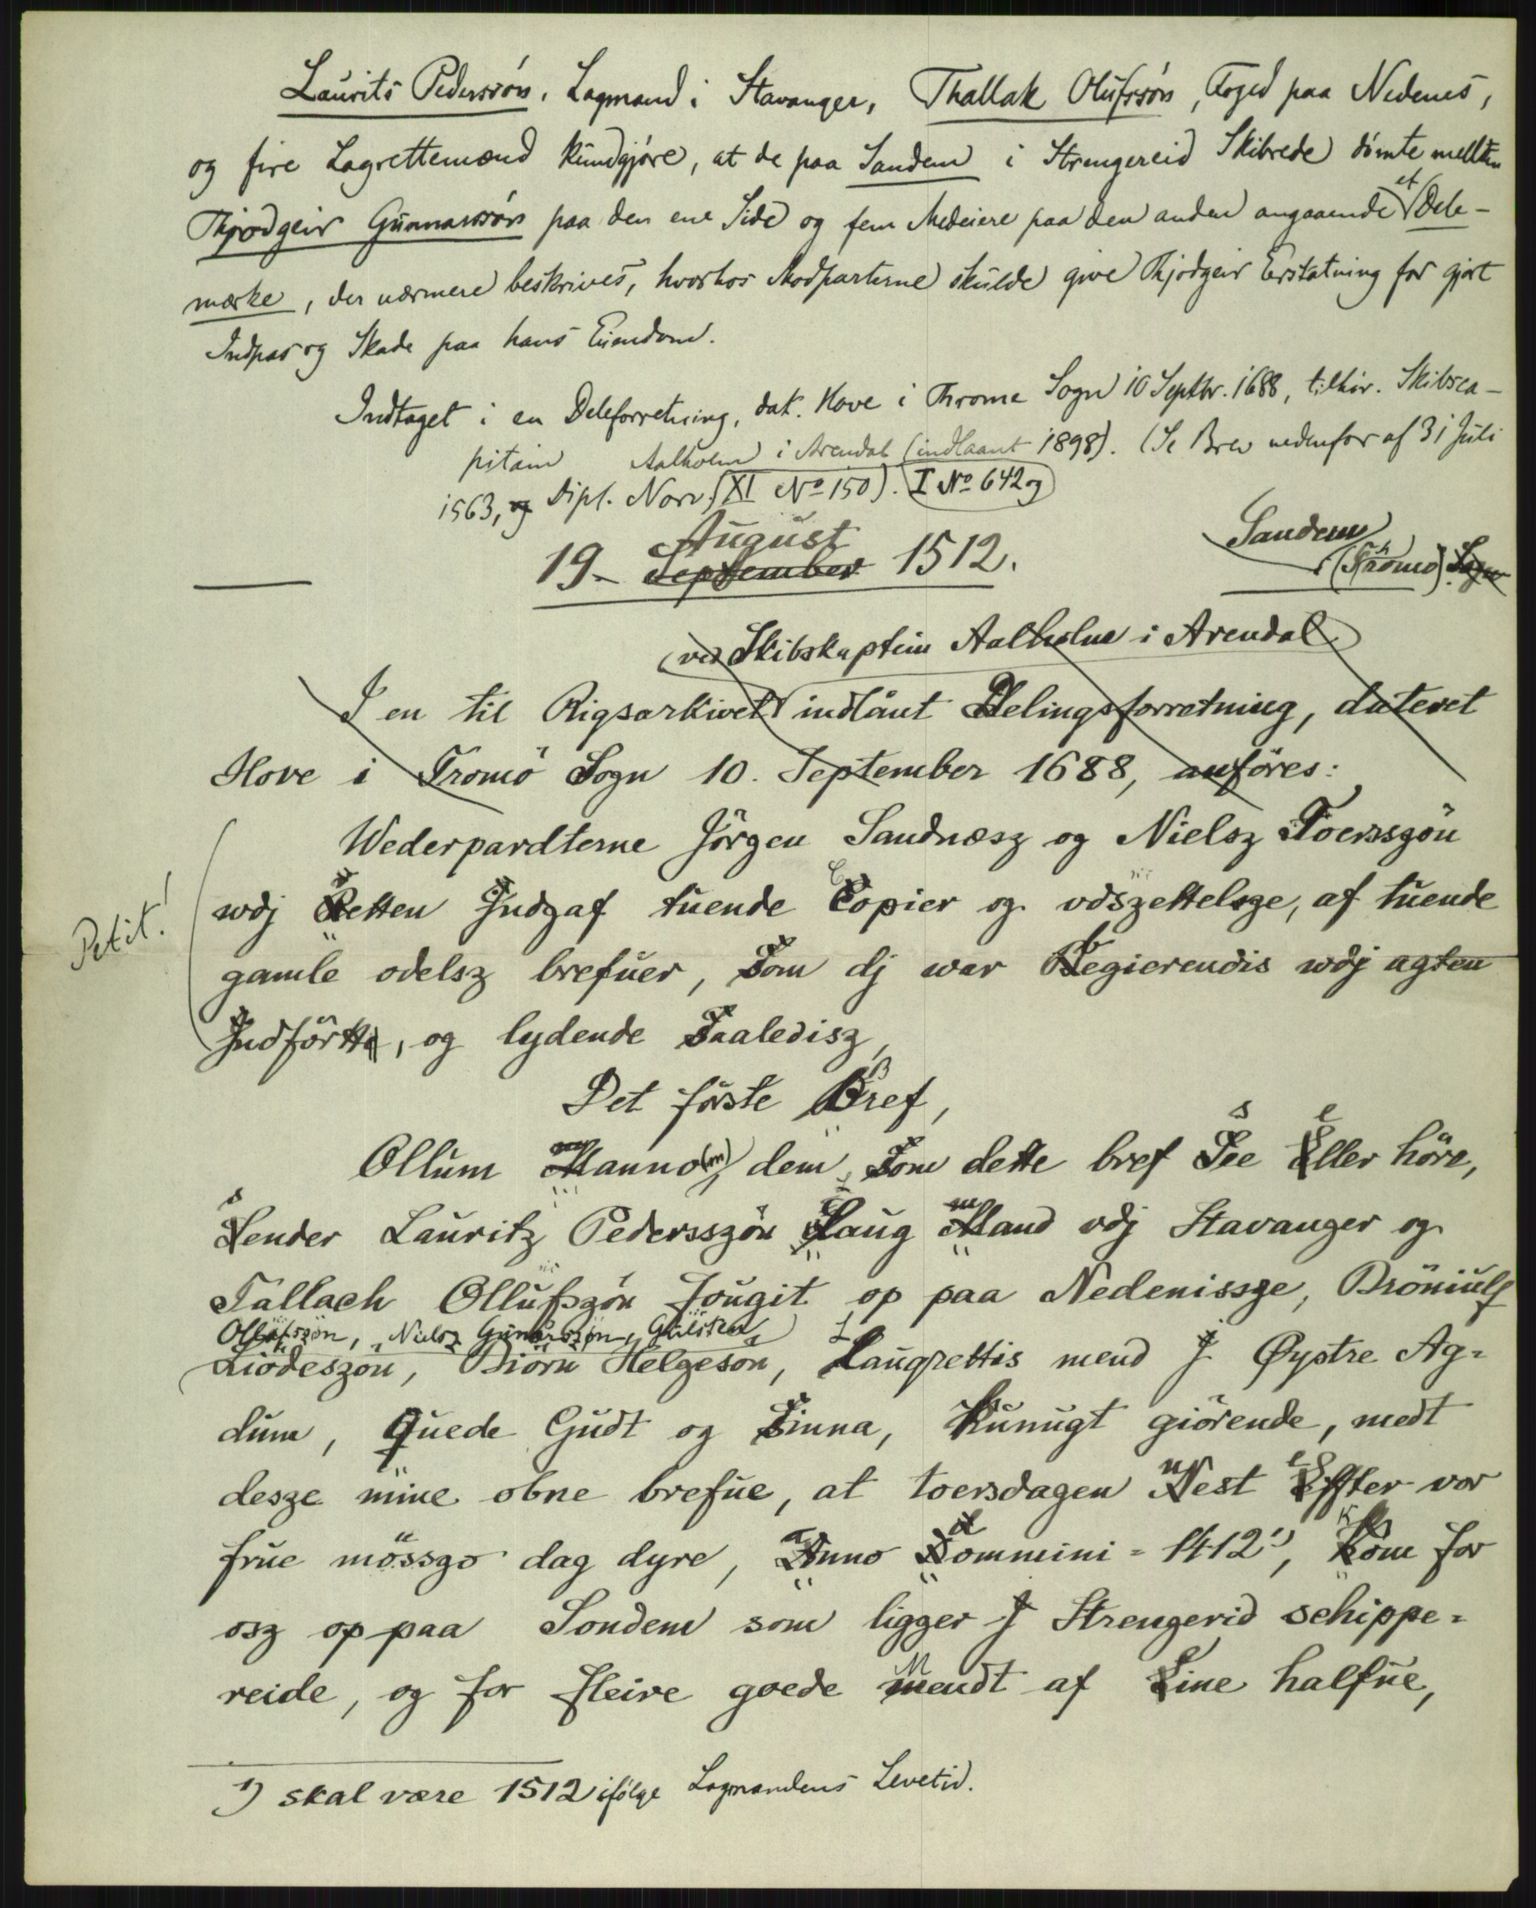 Laurits Pederssøn, Lagmand i Stavanger, Thallak Olufssøn, Foged paa Nedenes,
og fire Lagrettemænd kundgjøre, at de paa Sandem i Strengereid Skibrede dømte mellem
Thjodgeir Gunnarssøn paa den ene Side og fem Medeiere paa den anden angaaende et Dele-
mærke, der nærmere beskrives, hvorhos Modparterne skulde give Thjodgeir Erstatning for gjort
Indpas og Skade paa hans Eiendom.
Indtaget i en Deleforretning, dat. Hove i Thromø Sogn 10 Septbr. 1688, tilhør. Skibsca-
pitain Aalholm i Arendal (indlaant 1898). (Se Brev nedenfor af 31 Juli
1563, og Dipl. Norv. XI No 150). I No 642 og
August
19. September 1512.
Sandem
(Tromø) Sogn
(ved Skibskaptein Aalholm i Arendal)
I en til Rigsarkivet indlånt Delingsforretning, dateret
Hove i Tromö Sogn 10. September 1688, anföres:
Wederpardterne Jörgen Sandnæsz og Nielsz Toerssgön
wdj Retten Indgaf tuende Copier og vdszettelsge, af tuende
Petit!
gamle odelsz brefuer, Som dj war Begierendis wdj agten
Indförtt, og lydende Saaledisz,
Det förste Bref,
Ollum Manno(m) dem Som dette bref See Eller höre,
Sender Lauritz Pedersszön Laug Mand vdj Stavanger og
Tallach Ollufszön fougit op paa Nedenissze, Bröniulf
Ollufszön, Nielsz Gunerszön, Gulsten
Liödeszön, Biörn Helgesön, Laugrettis mend J Øystre Ag-
dum, quede Gudt og Sinna, Kunugt giörende, medt
desze mine obne brefue, at toersdagen Nest Effter vor
frue mössgo dag dyre, Anno Dommini = 1412 ¹), Kom for
osz op paa Sondem som ligger J Strengerid schippe-
reide, og for fleire goede Mendt af Eine halfue,
¹) skal være 1512 ifölge Lagmandens Levetid.